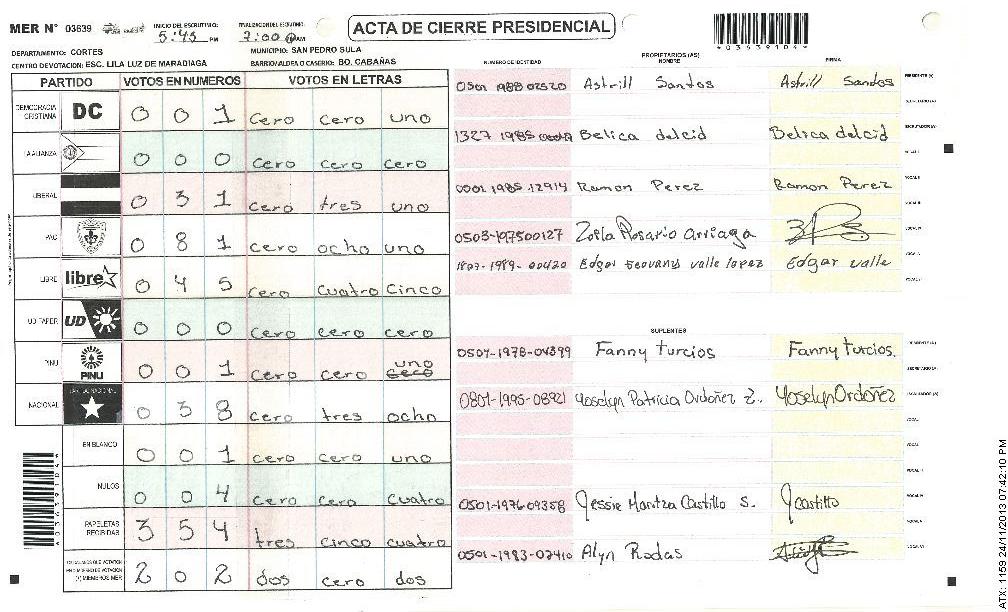 MER Nº 03639
INICIO DEL ESCRUTINIO: 5:45 PM
FINALIZACION DEL ESCRUTINIO: 7:00 AM
ACTA DE CIERRE PRESIDENCIAL
*03639104*
DEPARTAMENTO: CORTES
MUNICIPIO: SAN PEDRO SULA
CENTRO DE VOTACION: ESC. LILA LUZ DE MARADIAGA
BARRIO/ALDEA O CASERIO: BO. CABAÑAS
PARTIDO VOTOS EN NUMEROS VOTOS EN LETRAS
DEMOCRACIA CRISTIANA DC 0 0 1 cero cero uno
LA ALIANZA 0 0 0 cero cero cero
LIBERAL 0 3 1 cero tres uno
PAC 0 8 1 cero ocho uno
LIBRE libre 0 4 5 cero cuatro cinco
UD FAPER UD 0 0 0 cero cero cero
PINU PINU 0 0 1 cero cero uno
NACIONAL 0 3 8 cero tres ocho
EN BLANCO 0 0 1 cero cero uno
NULOS 0 0 4 cero cero cuatro
PAPELETAS RECIBIDAS 3 5 4 tres cinco cuatro
(+) MIEMBROS MER 2 0 2 dos cero dos
PROPIETARIOS (AS)
NUMERO DE IDENTIDAD NOMBRE FIRMA
0501 1988 02520 Astrill Santos Astrill Santos
1327 1985 Belica delcid Belica delcid
0501 1985 12914 Ramon Perez Ramon Perez
0503-197500127 Zoila Rosario Arriaga
1807-1989-00420 Edgar Geovany valle lopez Edgar valle
SUPLENTES
0507-1978-04399 Fanny turcios Fanny turcios.
0801-1995-08921 Yoselyn Patricia Ordoñez Z.. Yoselyn Ordoñez
0501-1976 09358 Jessie Maritza Castillo S. JCastillo
0501-1983-02410 Alyn Rodas
ATX: 1159 24/11/2013 07:42:10 PM